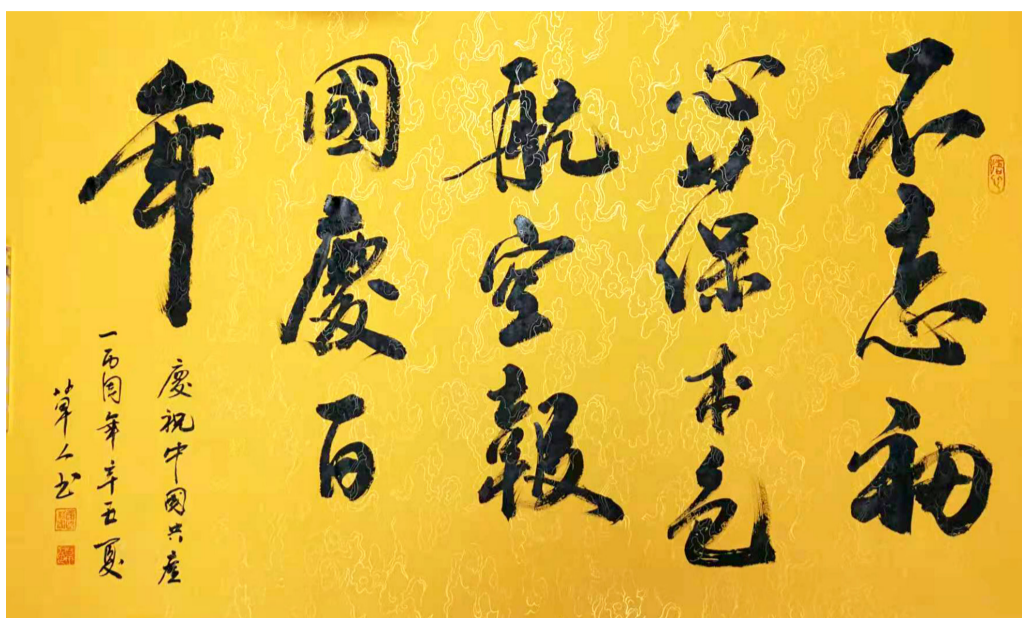 不忘初
心保本色
航空報
國慶百
年
慶祝中國共產
一百周年辛丑夏
草人书